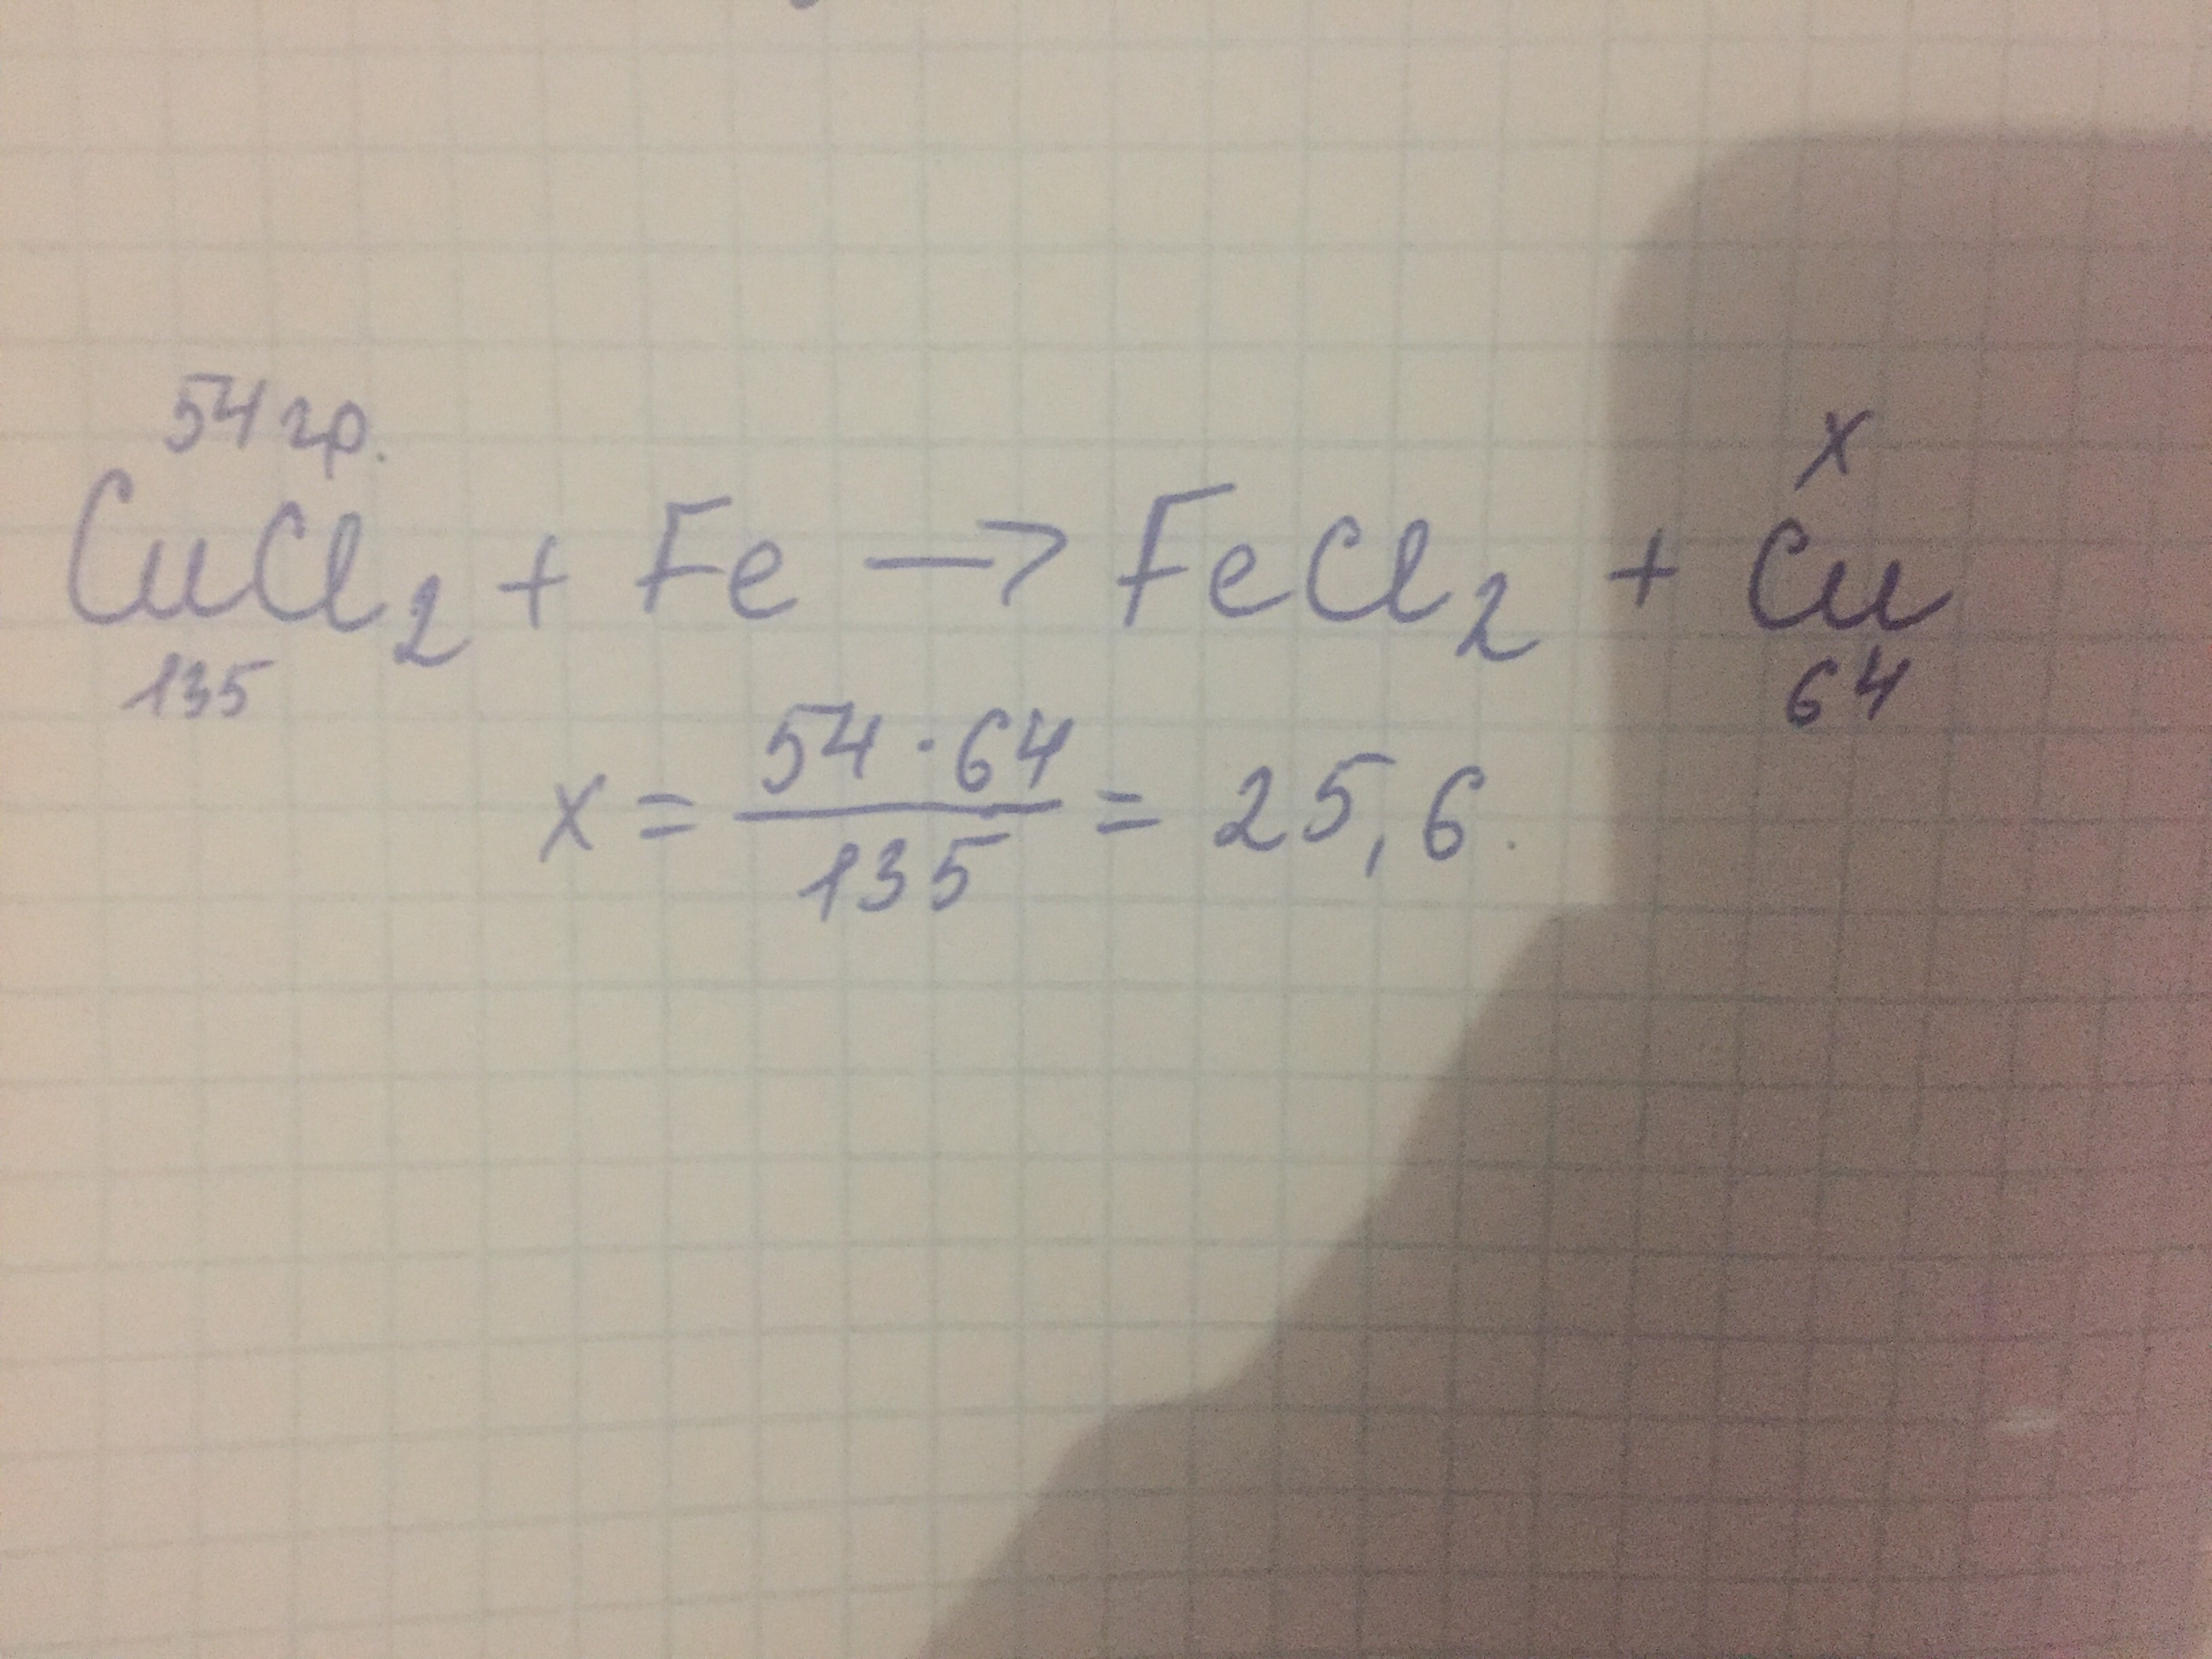 54 гр. x
CuCl₂ + Fe → FeCl₂ + Cu
135 64
x = 54 · 64 / 135 = 25,6.